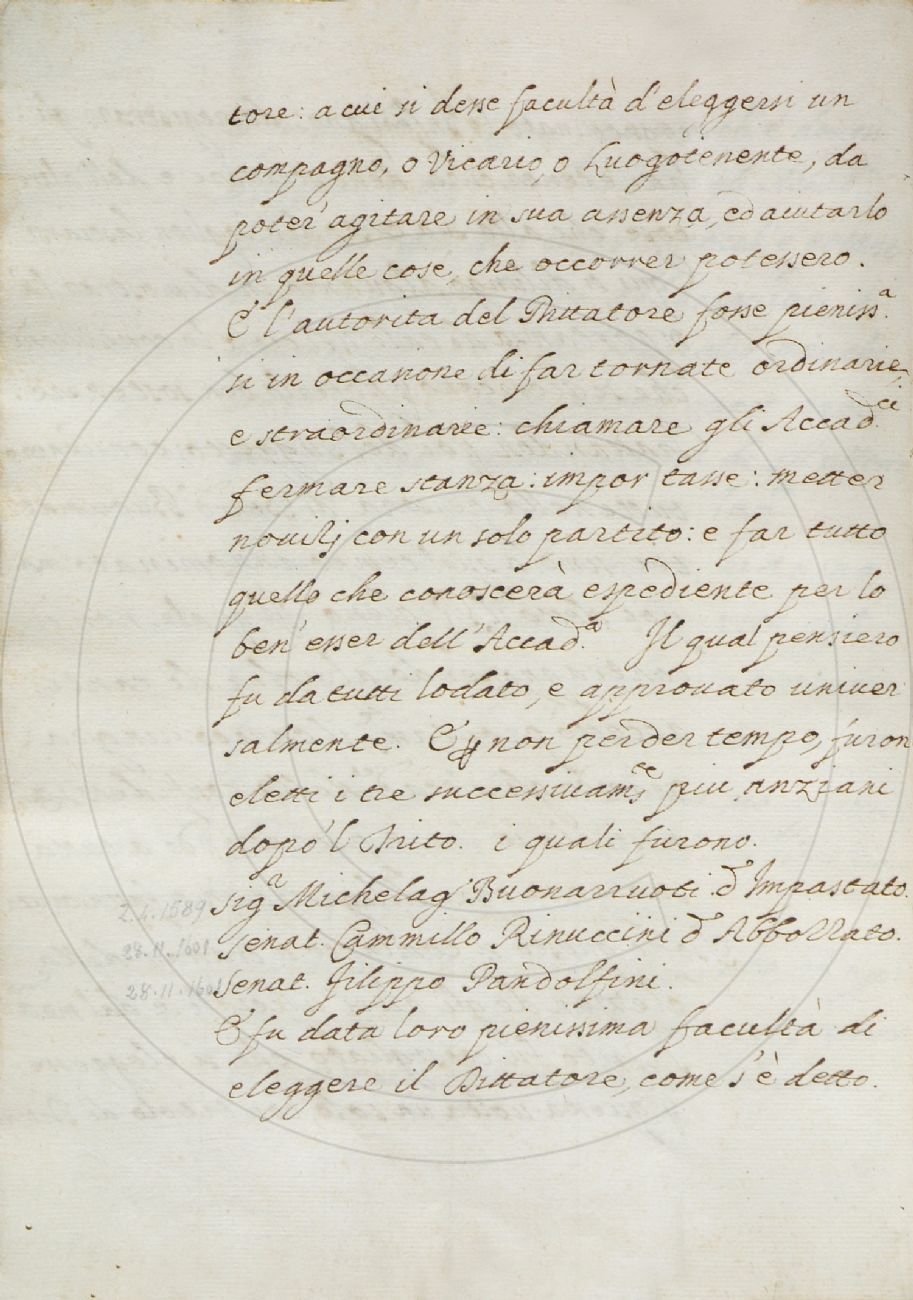 tore: a cui si desse facultà d'eleggersi un
compagno, o Vicario, o Luogotenente, da
poter' agitare in sua assenza, ed aiutarlo
in quelle cose, che occorrer potessero.
E l'autorita del Dittatore fosse pieniss.ª
si in occasione di far tornate ordinarie,
e straordinarie: chiamare gli Accad.ci
fermare stanza: impor tasse: metter
novizj con un solo partito: e far tutto
quello che conoscerà espediente per lo
ben' esser dell' Accad.ª Il qual pensiero
fu da tutti lodato, e approuato univer
salmente. E ꝑ non perder tempo, furon
eletti i tre successiuam.te piu anziani
dopo 'l Trito. i quali furono.
2.4.1589 Sig.r Michelag.º Buonarruoti d.º Impastato.
28.11.1601 Senat. Cammillo Rinuccini d.º Abbozzato.
28.11.1601 Senat. Filippo Pandolfini.
E fu data loro pienissima facultà di
eleggere il Dittatore, come s'è detto.